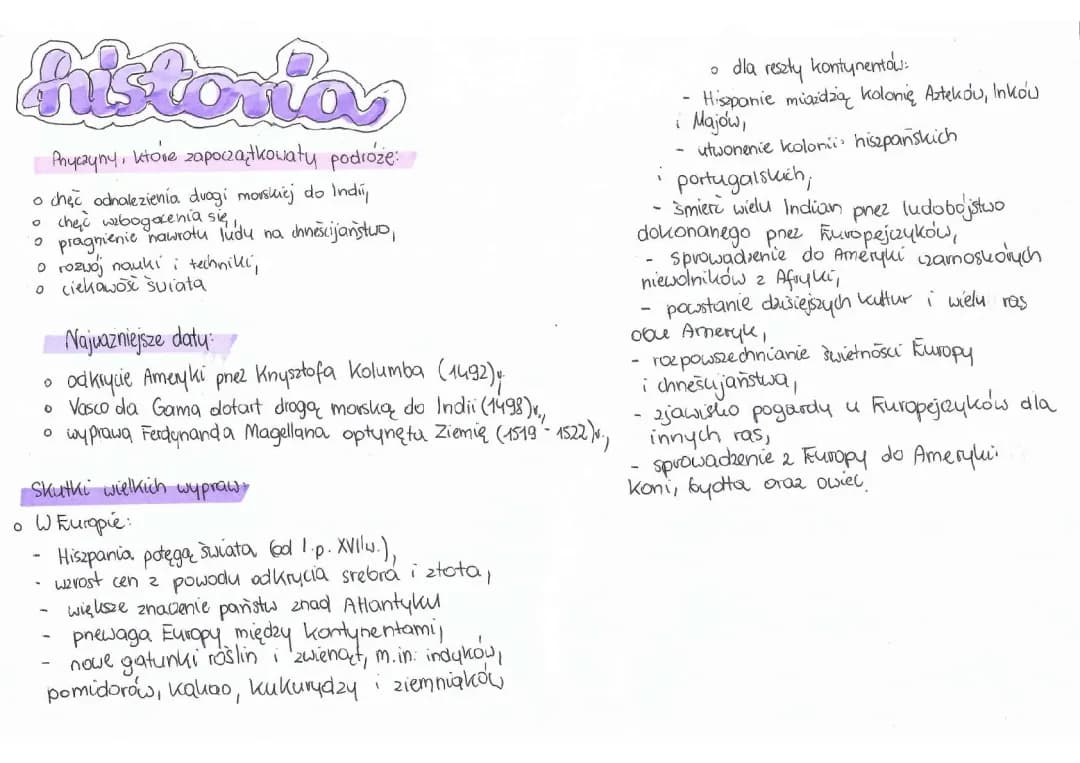 historia
Przyczyny, które zapoczątkowały podróże:
o chęć odnalezienia drogi morskiej do Indii,
o chęć wzbogacenia się,
o pragnienie nawrotu ludu na chrześcijaństwo,
o rozwój nauki i techniki,
o ciekawość świata
Najważniejsze daty:
o odkrycie Ameryki przez Krzysztofa Kolumba (1492)r.
o Vasco da Gama dotarł drogą morską do Indii (1498)r.,
o wyprawa Ferdynanda Magellana opłynęła Ziemię (1519 - 1522)r.,
Skutki wielkich wypraw:
o W Europie:
- Hiszpania potęgą świata (od I.p. XVII w.),
- wzrost cen z powodu odkrycia srebra i złota,
- większe znaczenie państw znad Atlantyku
- przewaga Europy między kontynentami,
- nowe gatunki roślin i zwierząt, m.in: indyków,
pomidorów, kakao, kukurydzy i ziemniaków
o dla reszty kontynentów:
- Hiszpanie miażdżą kolonię Azteków, Inków
i Majów,
- utworzenie kolonii hiszpańskich
i portugalskich,
- śmierć wielu Indian przez ludobójstwo
dokonanego przez Europejczyków,
- sprowadzenie do Ameryki czarnoskórych
niewolników z Afryki,
- powstanie dzisiejszych kultur i wielu ras
obu Ameryk,
- rozpowszechnianie świetności Europy
i chrześcijaństwa,
- zjawisko pogardy u Europejczyków dla
innych ras,
- sprowadzenie z Europy do Ameryki
koni, bydła oraz owiec.